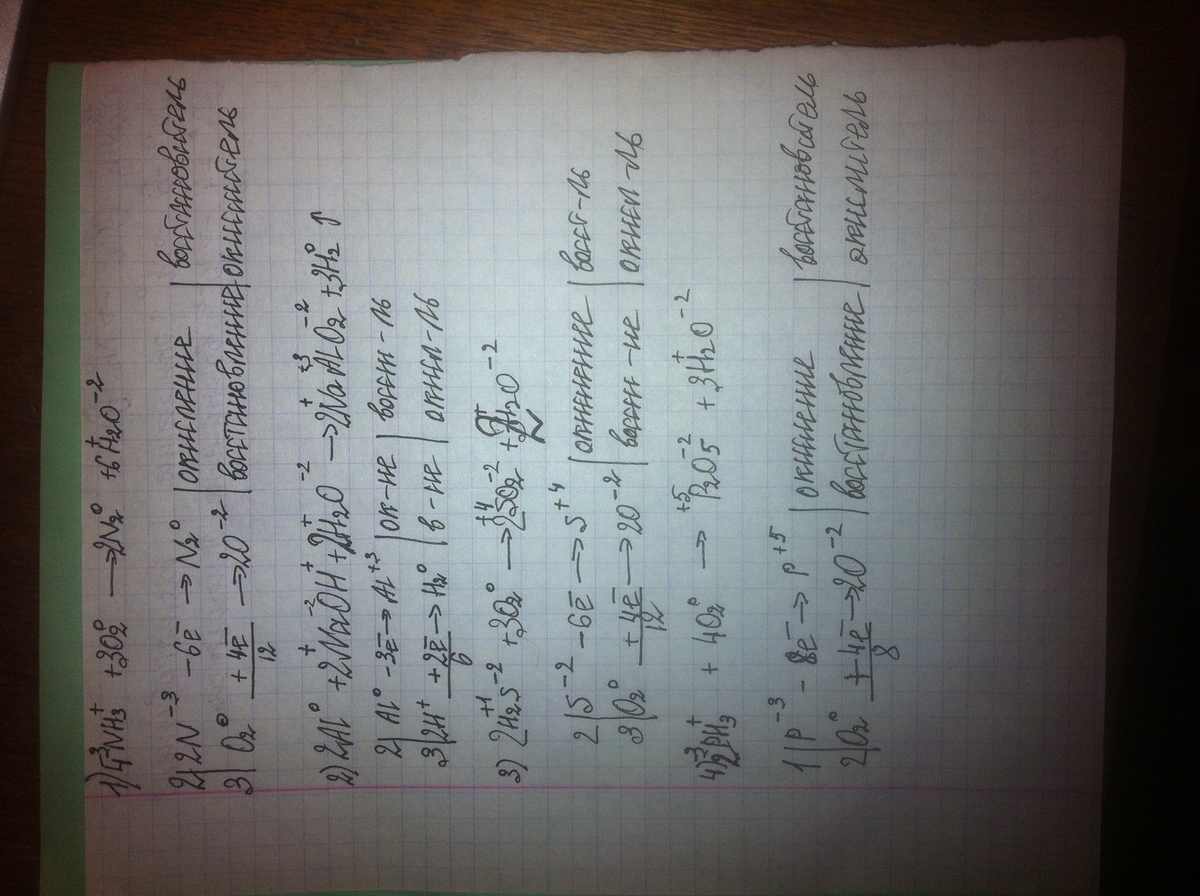 1) 4N⁻³H₃⁺ + 3O₂⁰ → 2N₂⁰ + 6H₂⁺O⁻²
2| 2N⁻³ - 6e̅ → N₂⁰ | окисление | восстановитель
3| O₂⁰ + 4e̅ → 2O⁻² | восстановление | окислитель
12
2) 2Al⁰ + 2Na⁺O⁻²H⁺ + 2H₂⁺O⁻² → 2Na⁺Al⁺³O₂⁻² + 3H₂⁰ ↑
2| Al⁰ - 3e̅ → Al⁺³ | ок-ие | восст-ль
3| 2H⁺ + 2e̅ → H₂⁰ | в-ие | окисл-ль
6
3) 2H₂⁺¹S⁻² + 3O₂⁰ → 2S⁺⁴O₂⁻² + 2H₂⁺O⁻²
2| S⁻² - 6e̅ → S⁺⁴ | окисление | восст-ль
3| O₂⁰ + 4e̅ → 2O⁻² | восст-ие | окисл-ль
12
4) 2P⁻³H₃⁺ + 4O₂⁰ → P₂⁺⁵O₅⁻² + 3H₂⁺O⁻²
1| P⁻³ - 8e̅ → P⁺⁵ | окисление | восстановитель
2| O₂⁰ + 4e̅ → 2O⁻² | восстановление | окислитель
8